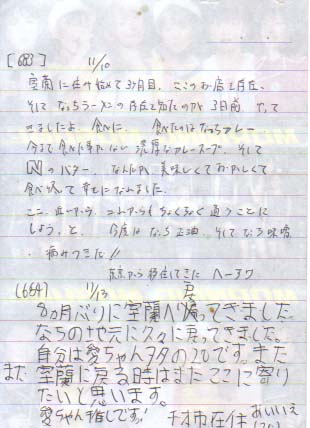 [683] 11/10
室蘭に住み始めて3ヶ月目。ここのお店の存在、
そしてなっちラーメンの存在を知ったのが3日前。やって
きましたよ、食べに。食べたのはなっちカレー
今まで食べた事がない濃厚なカレースープ、そして
のバター。なんだか、美味しくておかしくて
食べ終って幸せになれました。
ここ、近いから、これからもちょくちょく通うことに
しよう、と。今度はなっち正油、そしてなっち味噌。
病みつきだ!!
東京から移住してきた
(684) 11/13
8カ月ぶりに室蘭へ帰ってきました。
なっちの地元に久々に戻ってきました。
自分は愛ちゃんヲタの20です。また
また室蘭に戻る時はまたここに寄り
たいと思います。
愛ちゃん推しです。 市在住